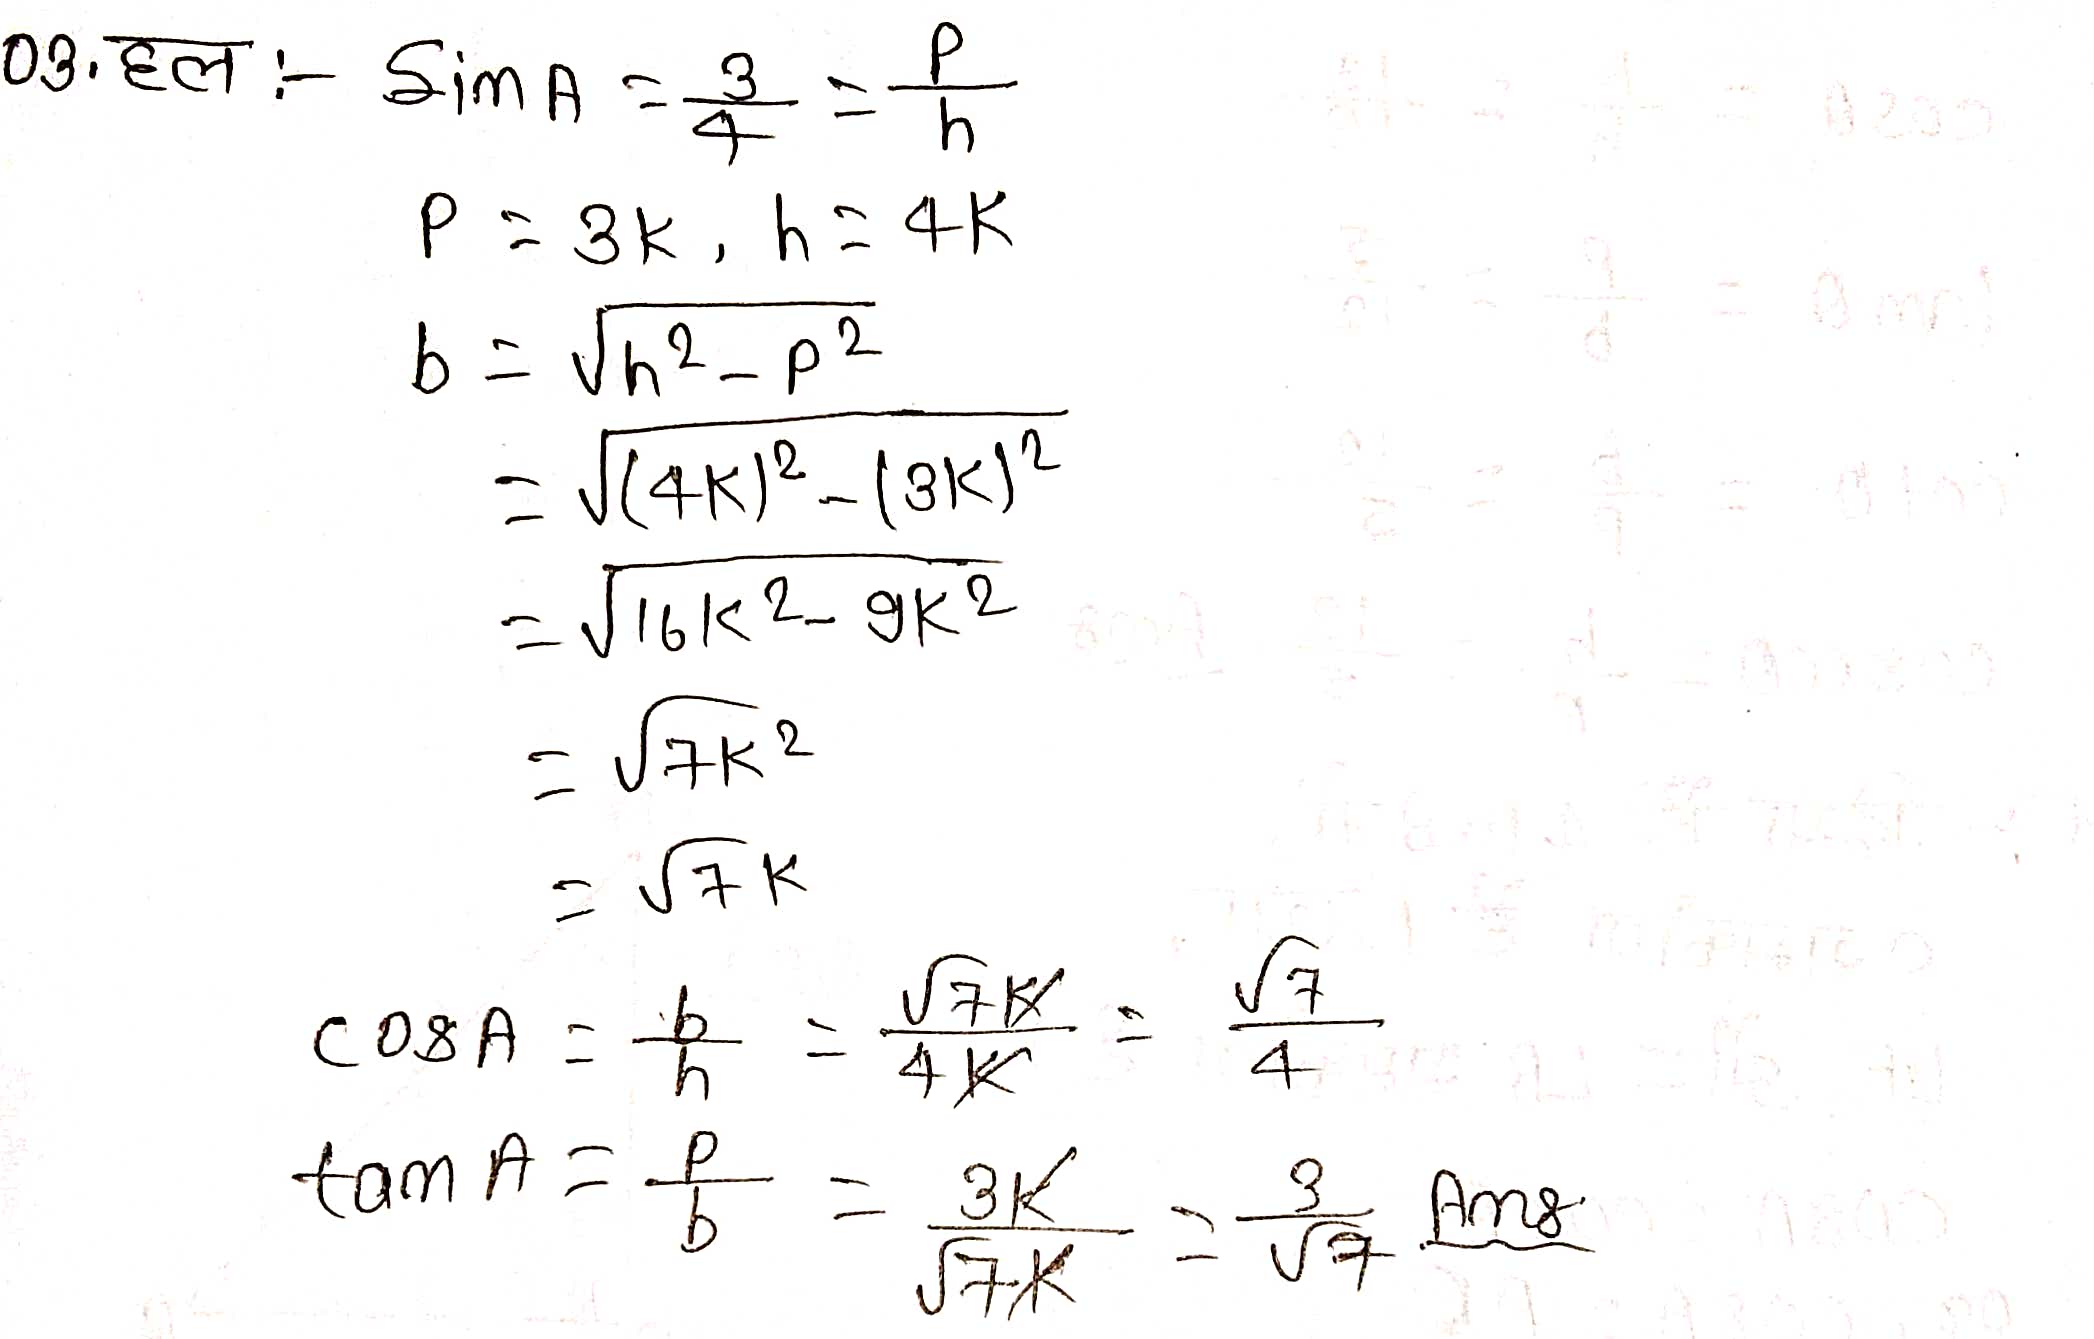 03. हल :- Sin A = 3/4 = P/h
P = 3K, h = 4K
b = √(h² - P²)
= √((4K)² - (3K)²)
= √(16K² - 9K²)
= √(7K²)
= √7 K
cos A = b/h = √7K/4K = √7/4
tan A = P/b = 3K/√7K = 3/√7 Ans